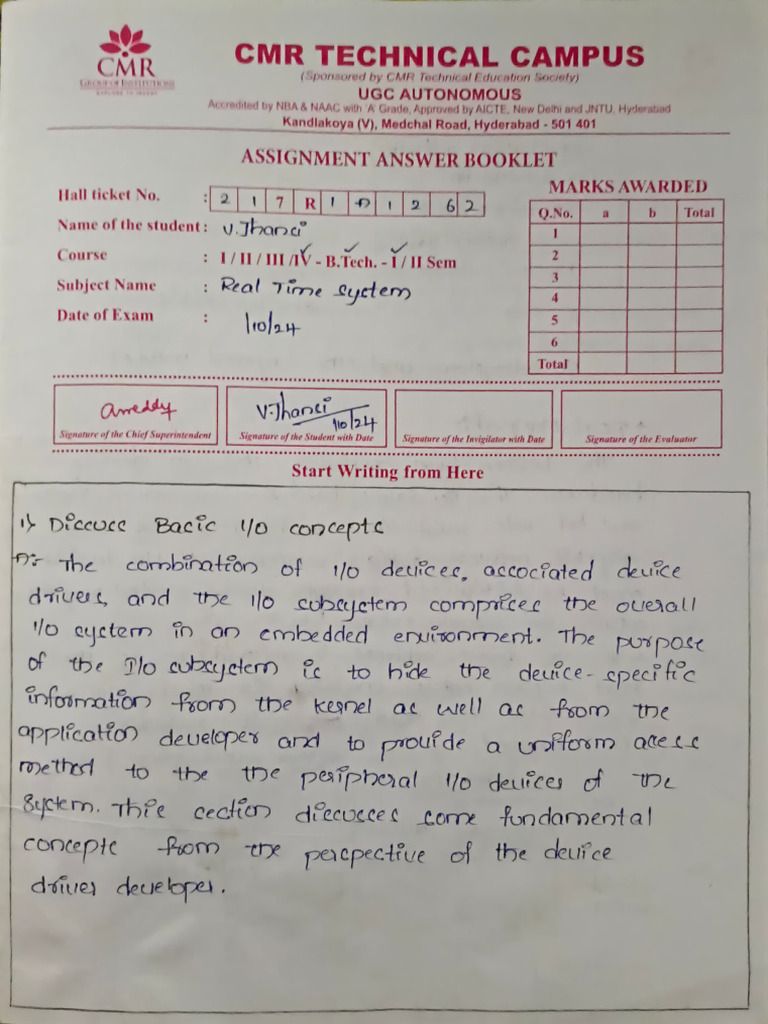 CMR
GROUP OF INSTITUTIONS
EXPLORE TO INVENT
CMR TECHNICAL CAMPUS
(Sponsored by CMR Technical Education Society)
UGC AUTONOMOUS
Accredited by NBA & NAAC with 'A' Grade, Approved by AICTE, New Delhi and JNTU, Hyderabad
Kandlakoya (V), Medchal Road, Hyderabad - 501 401
ASSIGNMENT ANSWER BOOKLET
Hall ticket No. : 2 1 7 R 1 A 1 2 6 2
Name of the student : V.Jhansi
Course : I / II / III / IV - B.Tech. - I / II Sem
Subject Name : Real Time System
Date of Exam : 1/10/24
MARKS AWARDED
Q.No. a b Total
1
2
3
4
5
6
Total
Signature of the Chief Superintendent
V.Jhansi
1/10/24
Signature of the Student with Date
Signature of the Invigilator with Date
Signature of the Evaluator
Start Writing from Here
1) Discuss Basic I/O concepts
A:- The combination of I/O devices, associated device
drivers, and the I/O subsystem comprises the overall
I/O system in an embedded environment. The purpose
of the I/O subsystem is to hide the device-specific
information from the kernel as well as from the
application developer and to provide a uniform acess
method to the the peripheral I/O devices of the
System. This section discusses some fundamental
concepts from the perspective of the device
driver developer.